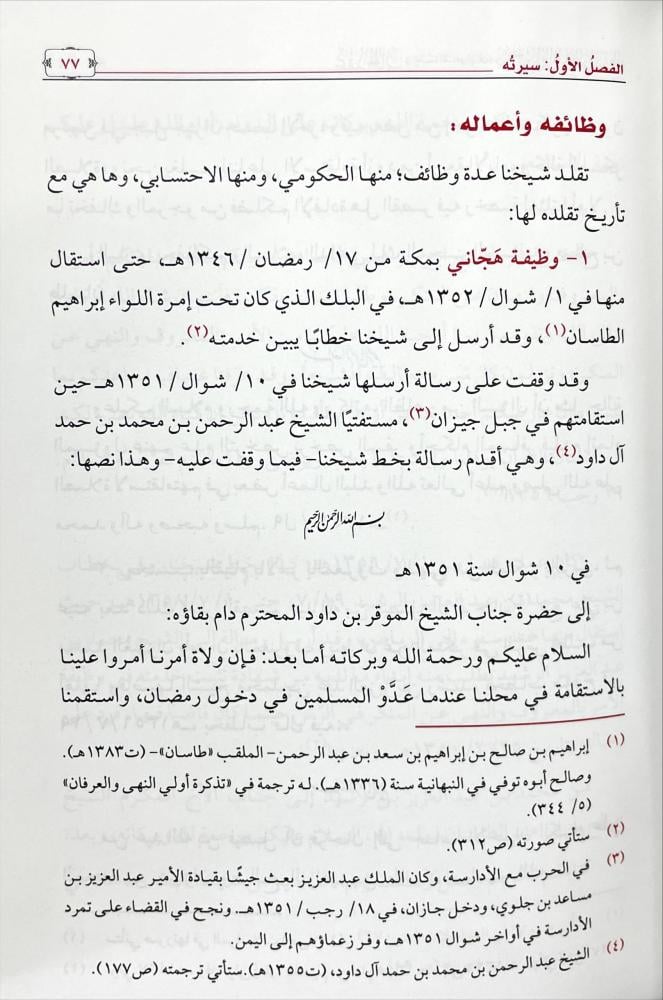 الفصلُ الأولُ: سيرتُه
٧٧
وظائفه وأعماله:
تقلد شيخنا عدة وظائف؛ منها الحكومي، ومنها الاحتسابي، وها هي مع
تأريخ تقلده لها:
١- وظيفة هَجّاني بمكة من ١٧/ رمضان/ ١٣٤٦هـ، حتى استقال
منها في ١/ شوال/ ١٣٥٢هـ، في البلك الذي كان تحت إمرة اللواء إبراهيم
الطاسان(١)، وقد أرسل إلى شيخنا خطابًا يبين خدمته(٢).
وقد وقفت على رسالة أرسلها شيخنا في ١٠/ شوال/ ١٣٥١هـ حين
استقامتهم في جبل جيزان(٣)، مستفتيًا الشيخ عبد الرحمن بن محمد بن حمد
آل داود(٤)، وهي أقدم رسالة بخط شيخنا- فيما وقفت عليه- وهذا نصها:
بسم الله الرحمن الرحيم
في ١٠ شوال سنة ١٣٥١هـ
إلى حضرة جناب الشيخ الموقر بن داود المحترم دام بقاؤه:
السلام عليكم ورحمة الله وبركاته أما بعد: فإن ولاة أمرنا أمروا علينا
بالاستقامة في محلنا عندما عَدَّوْ المسلمين في دخول رمضان، واستقمنا
(١) إبراهيم بن صالح بن إبراهيم بن سعد بن عبد الرحمن- الملقب «طاسان»- (ت١٣٨٣هـ).
وصالح أبوه توفي في النبهانية سنة (١٣٣٦هـ). له ترجمة في «تذكرة أولي النهى والعرفان»
(٥/ ٣٤٤).
(٢) ستأتي صورته (ص٣١٢).
(٣) في الحرب مع الأدارسة، وكان الملك عبد العزيز بعث جيشًا بقيادة الأمير عبد العزيز بن
مساعد بن جلوي، ودخل جازان، في ١٨/ رجب/ ١٣٥١هـ. ونجح في القضاء على تمرد
الأدارسة في أواخر شوال ١٣٥١هـ، وفر زعماؤهم إلى اليمن.
(٤) الشيخ عبد الرحمن بن محمد بن حمد آل داود، (ت١٣٥٥هـ).ستأتي ترجمته (ص١٧٧).